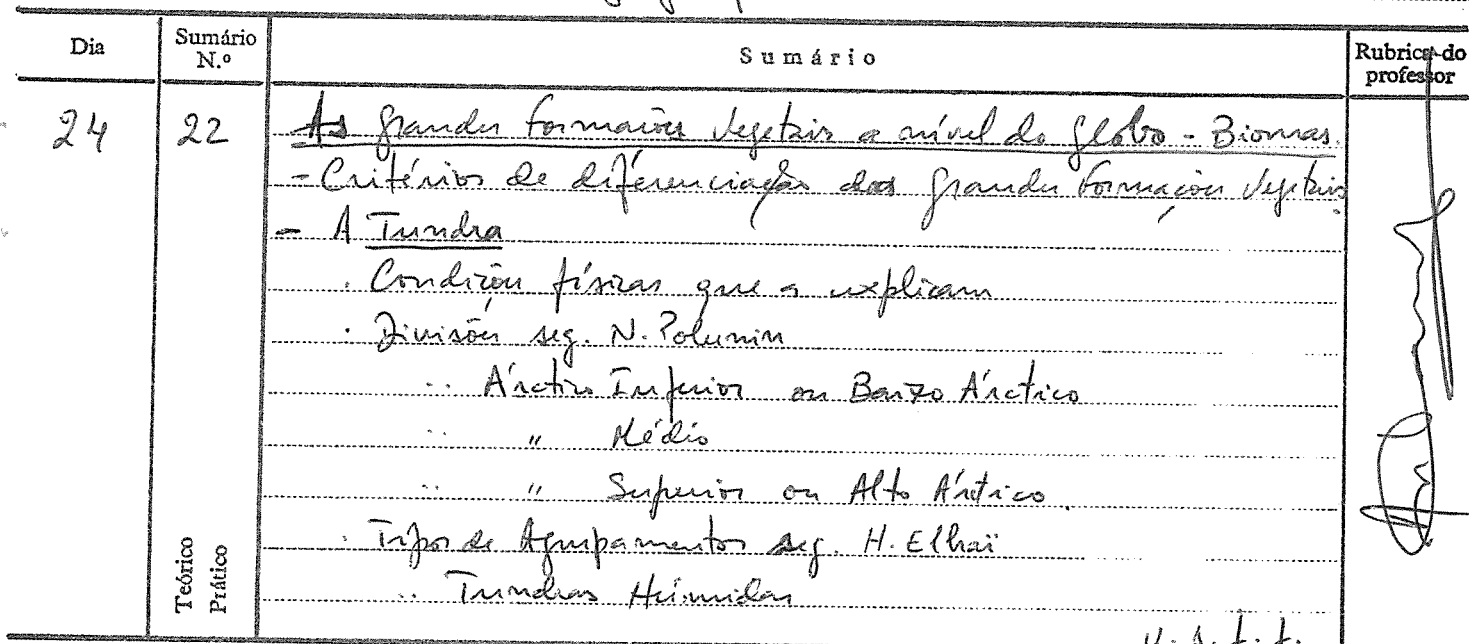 Dia Sumário N.º Sumário Rubrica do professor
24 22 As grandes formações vegetais a nível do globo - Biomas.
- Critérios de diferenciação das grandes formações vegetais
- A Tundra
. Condições físicas que a explicam
. Divisões seg. N. Polunin
.. Árctico Inferior ou Baixo Árctico
.. " Médio
.. " Superior ou Alto Árctico
. Tipos de Agrupamentos seg. H. Elhaï
.. Tundras Húmidas
Teórico
Prático